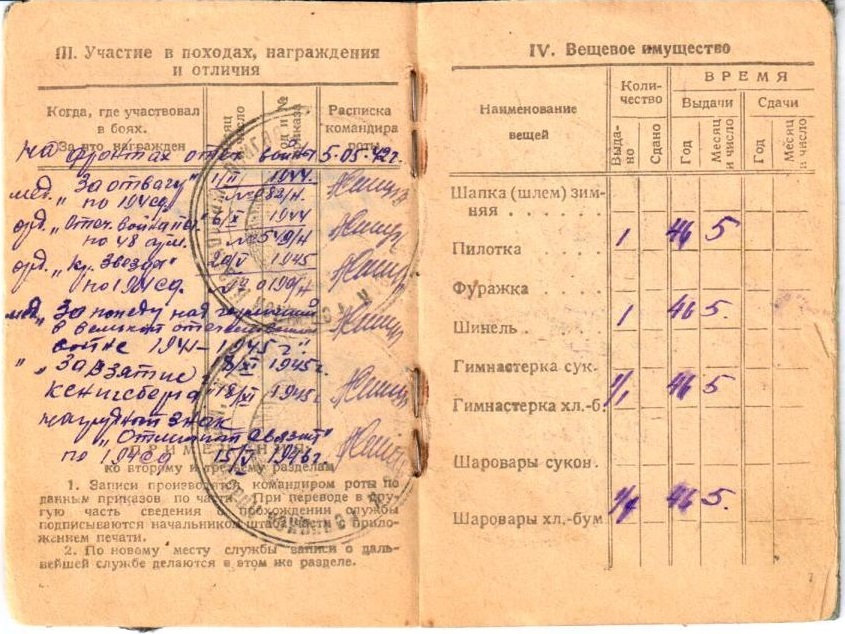 III. Участие в походах, награждения
и отличия
Когда, где участвовал
в боях.
За что награжден
Месяц
и число
Год и №
приказа
Расписка
командира
роты
на фронтах отеч. войны 5-05-42г.
мед. "За отвагу" 1944
по 194 сд
орд. "Отеч. войны 6/XI 1944
по 48 арм. № 549/н
орд. "Кр. Звезда" 20/V 1945
по 194 сд
мед. "За победу над германией
в великой отечественной
войне 1941-1945 г."
" "За взятие 8/XI 1945г.
Кенигсберга 18/XI 1945г.
нагрудный знак
"Отличный связист"
по 194 сд 15/V 1946г.
ПРИМЕЧАНИЯ
ко второму и третьему разделам
1. Записи производятся командиром роты по
данным приказов по части. При переводе в дру-
гую часть сведения о прохождении службы
подписываются начальником штаба части с прило-
жением печати.
2. По новому месту службы записи о даль-
нейшей службе делаются в этом же разделе.
IV. Вещевое имущество
Наименование
вещей
Коли-
чество
ВРЕМЯ
Выдачи
Сдачи
Выда-
но
Сдано
Год
Месяц
и число
Год
Месяц
и число
Шапка (шлем) зим-
няя . . . . . .
Пилотка 1 46 5
Фуражка
Шинель 1 46 5.
Гимнастерка сук.
Гимнастерка хл.-б. 1/1 46 5
Шаровары сукон.
Шаровары хл.-бум 46 5.